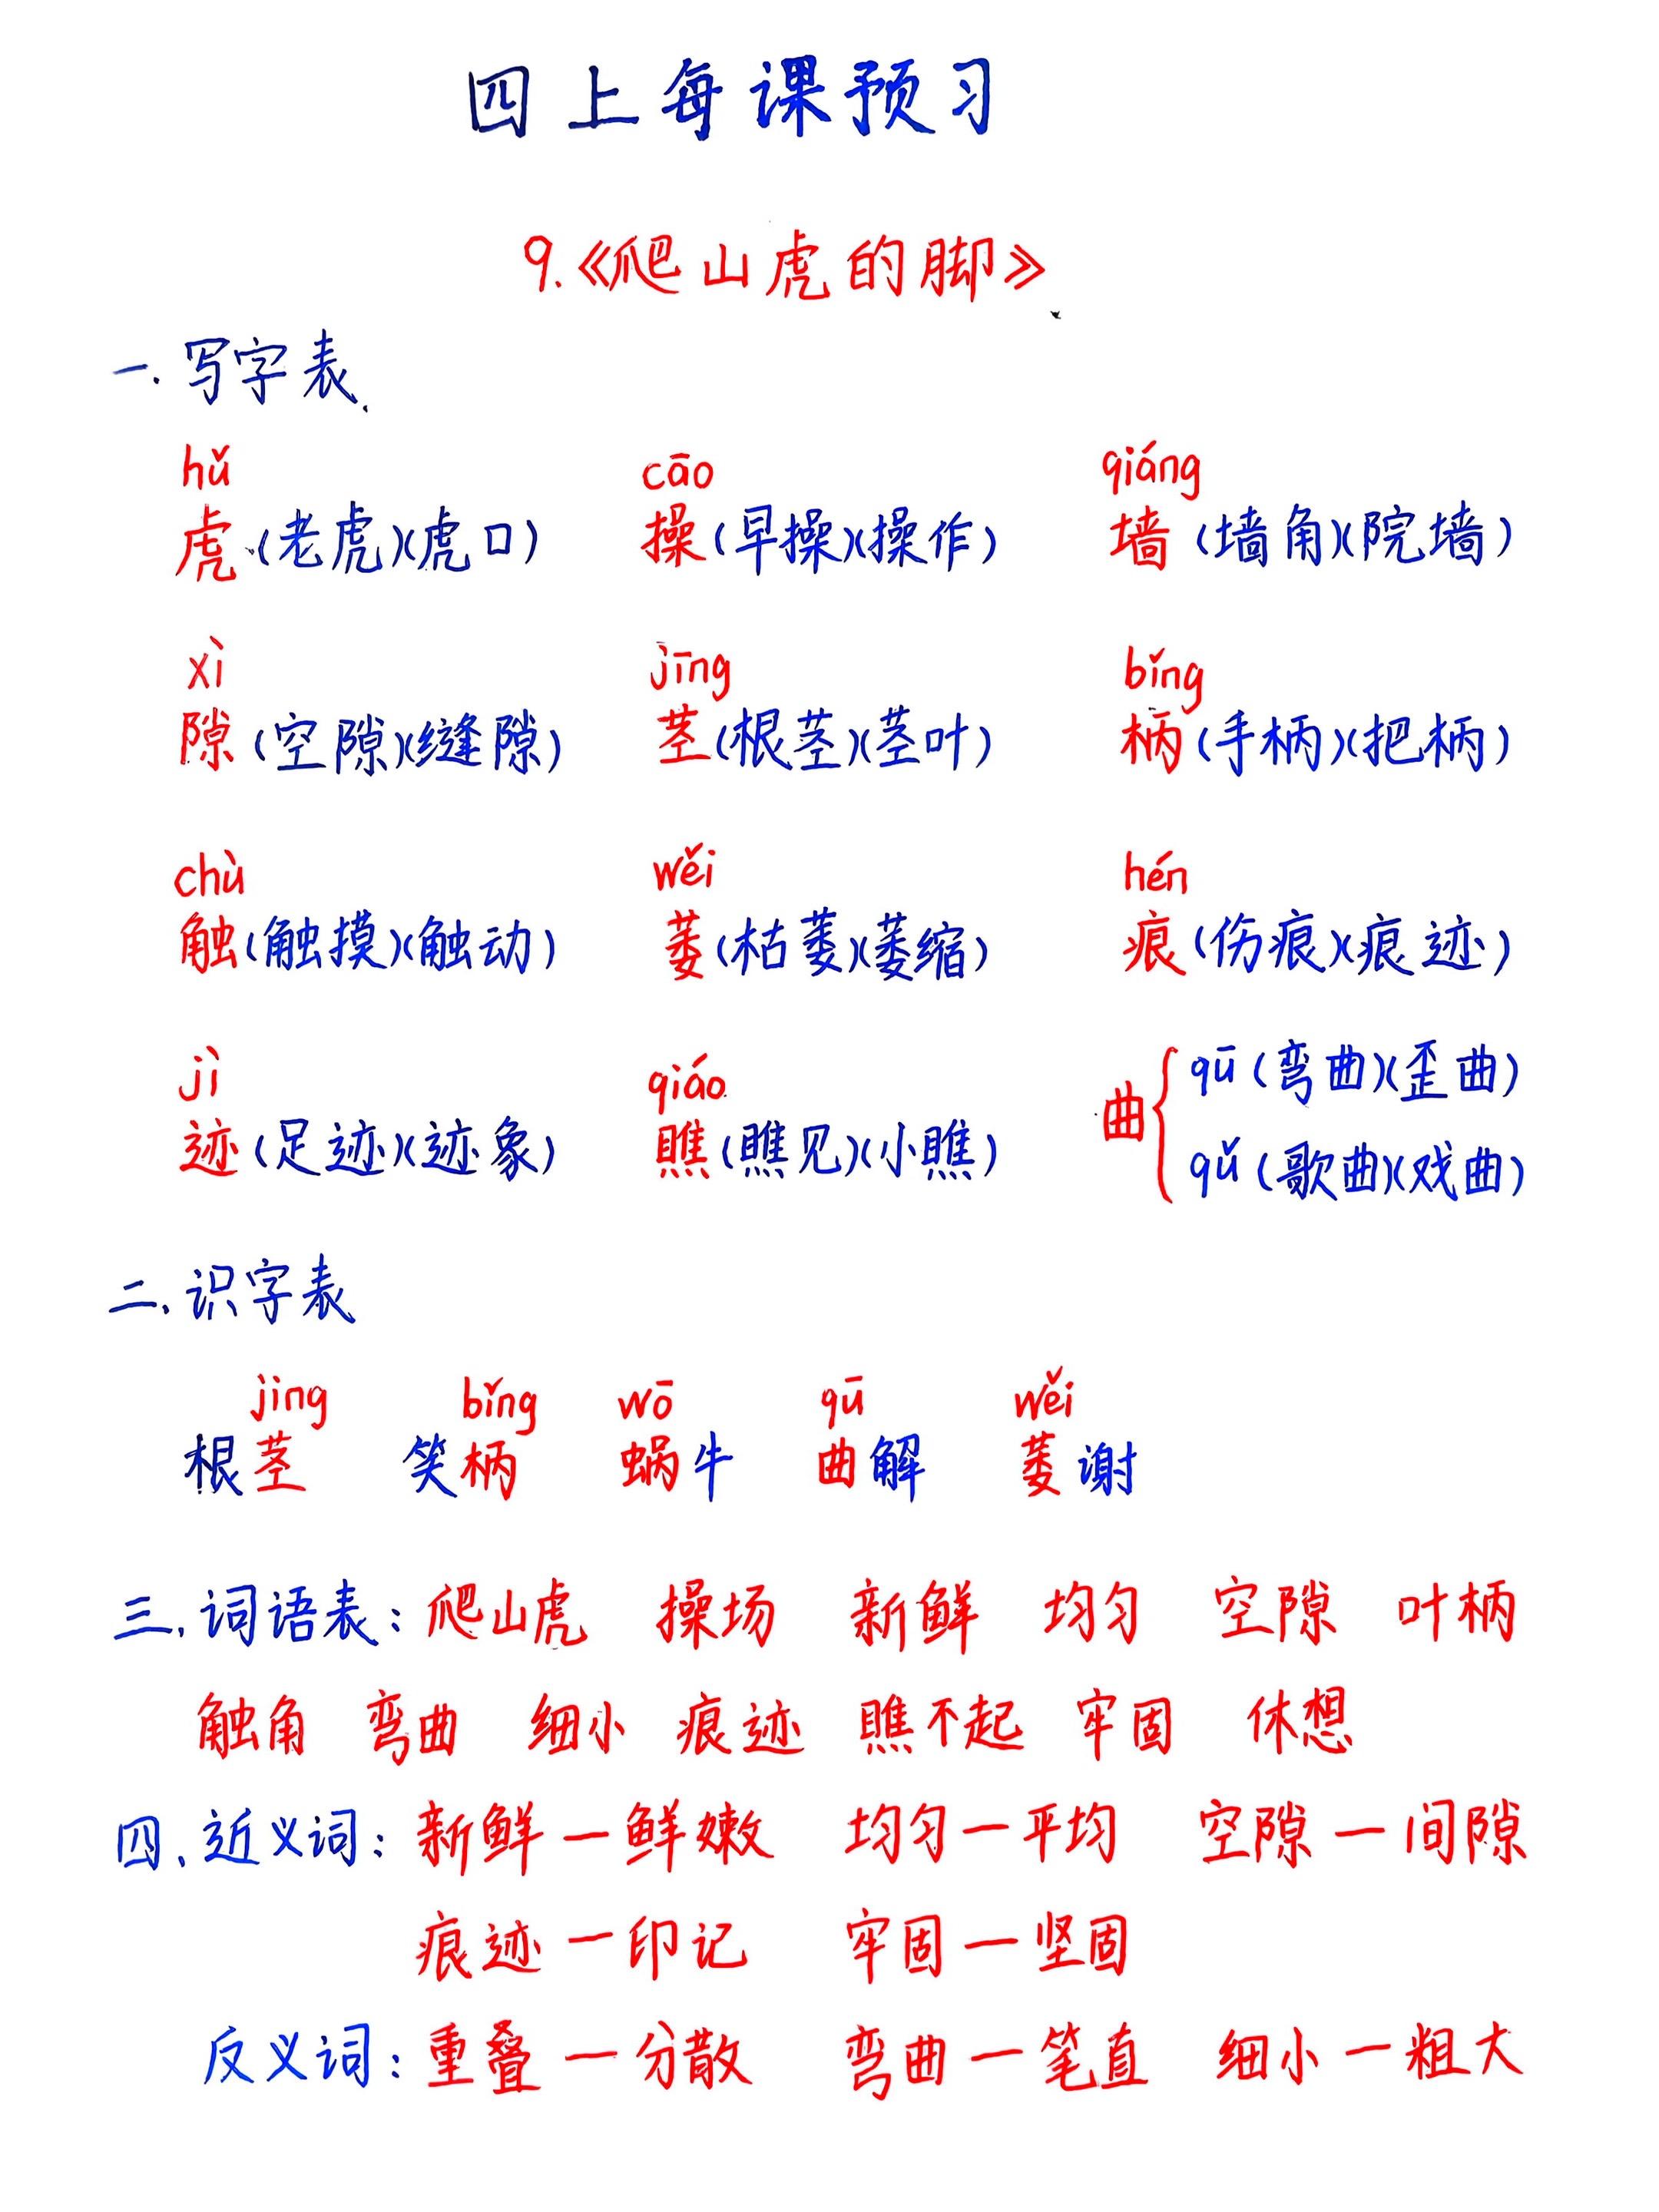 四上每课预习
9.《爬山虎的脚》
一.写字表
hǔ cāo qiáng
虎(老虎)(虎口) 操(早操)(操作) 墙(墙角)(院墙)
xì jīng bǐng
隙(空隙)(缝隙) 茎(根茎)(茎叶) 柄(手柄)(把柄)
chù wěi hén
触(触摸)(触动) 萎(枯萎)(萎缩) 痕(伤痕)(痕迹)
jì qiáo
迹(足迹)(迹象) 瞧(瞧见)(小瞧) 曲
qū(弯曲)(歪曲)
qǔ(歌曲)(戏曲)
二.识字表
jing bǐng wō qū wěi
根茎 笑柄 蜗牛 曲解 萎谢
三.词语表:爬山虎 操场 新鲜 均匀 空隙 叶柄
触角 弯曲 细小 痕迹 瞧不起 牢固 休想
四.近义词:新鲜—鲜嫩 均匀—平均 空隙—间隙
痕迹—印记 牢固—坚固
反义词:重叠—分散 弯曲—笔直 细小—粗大